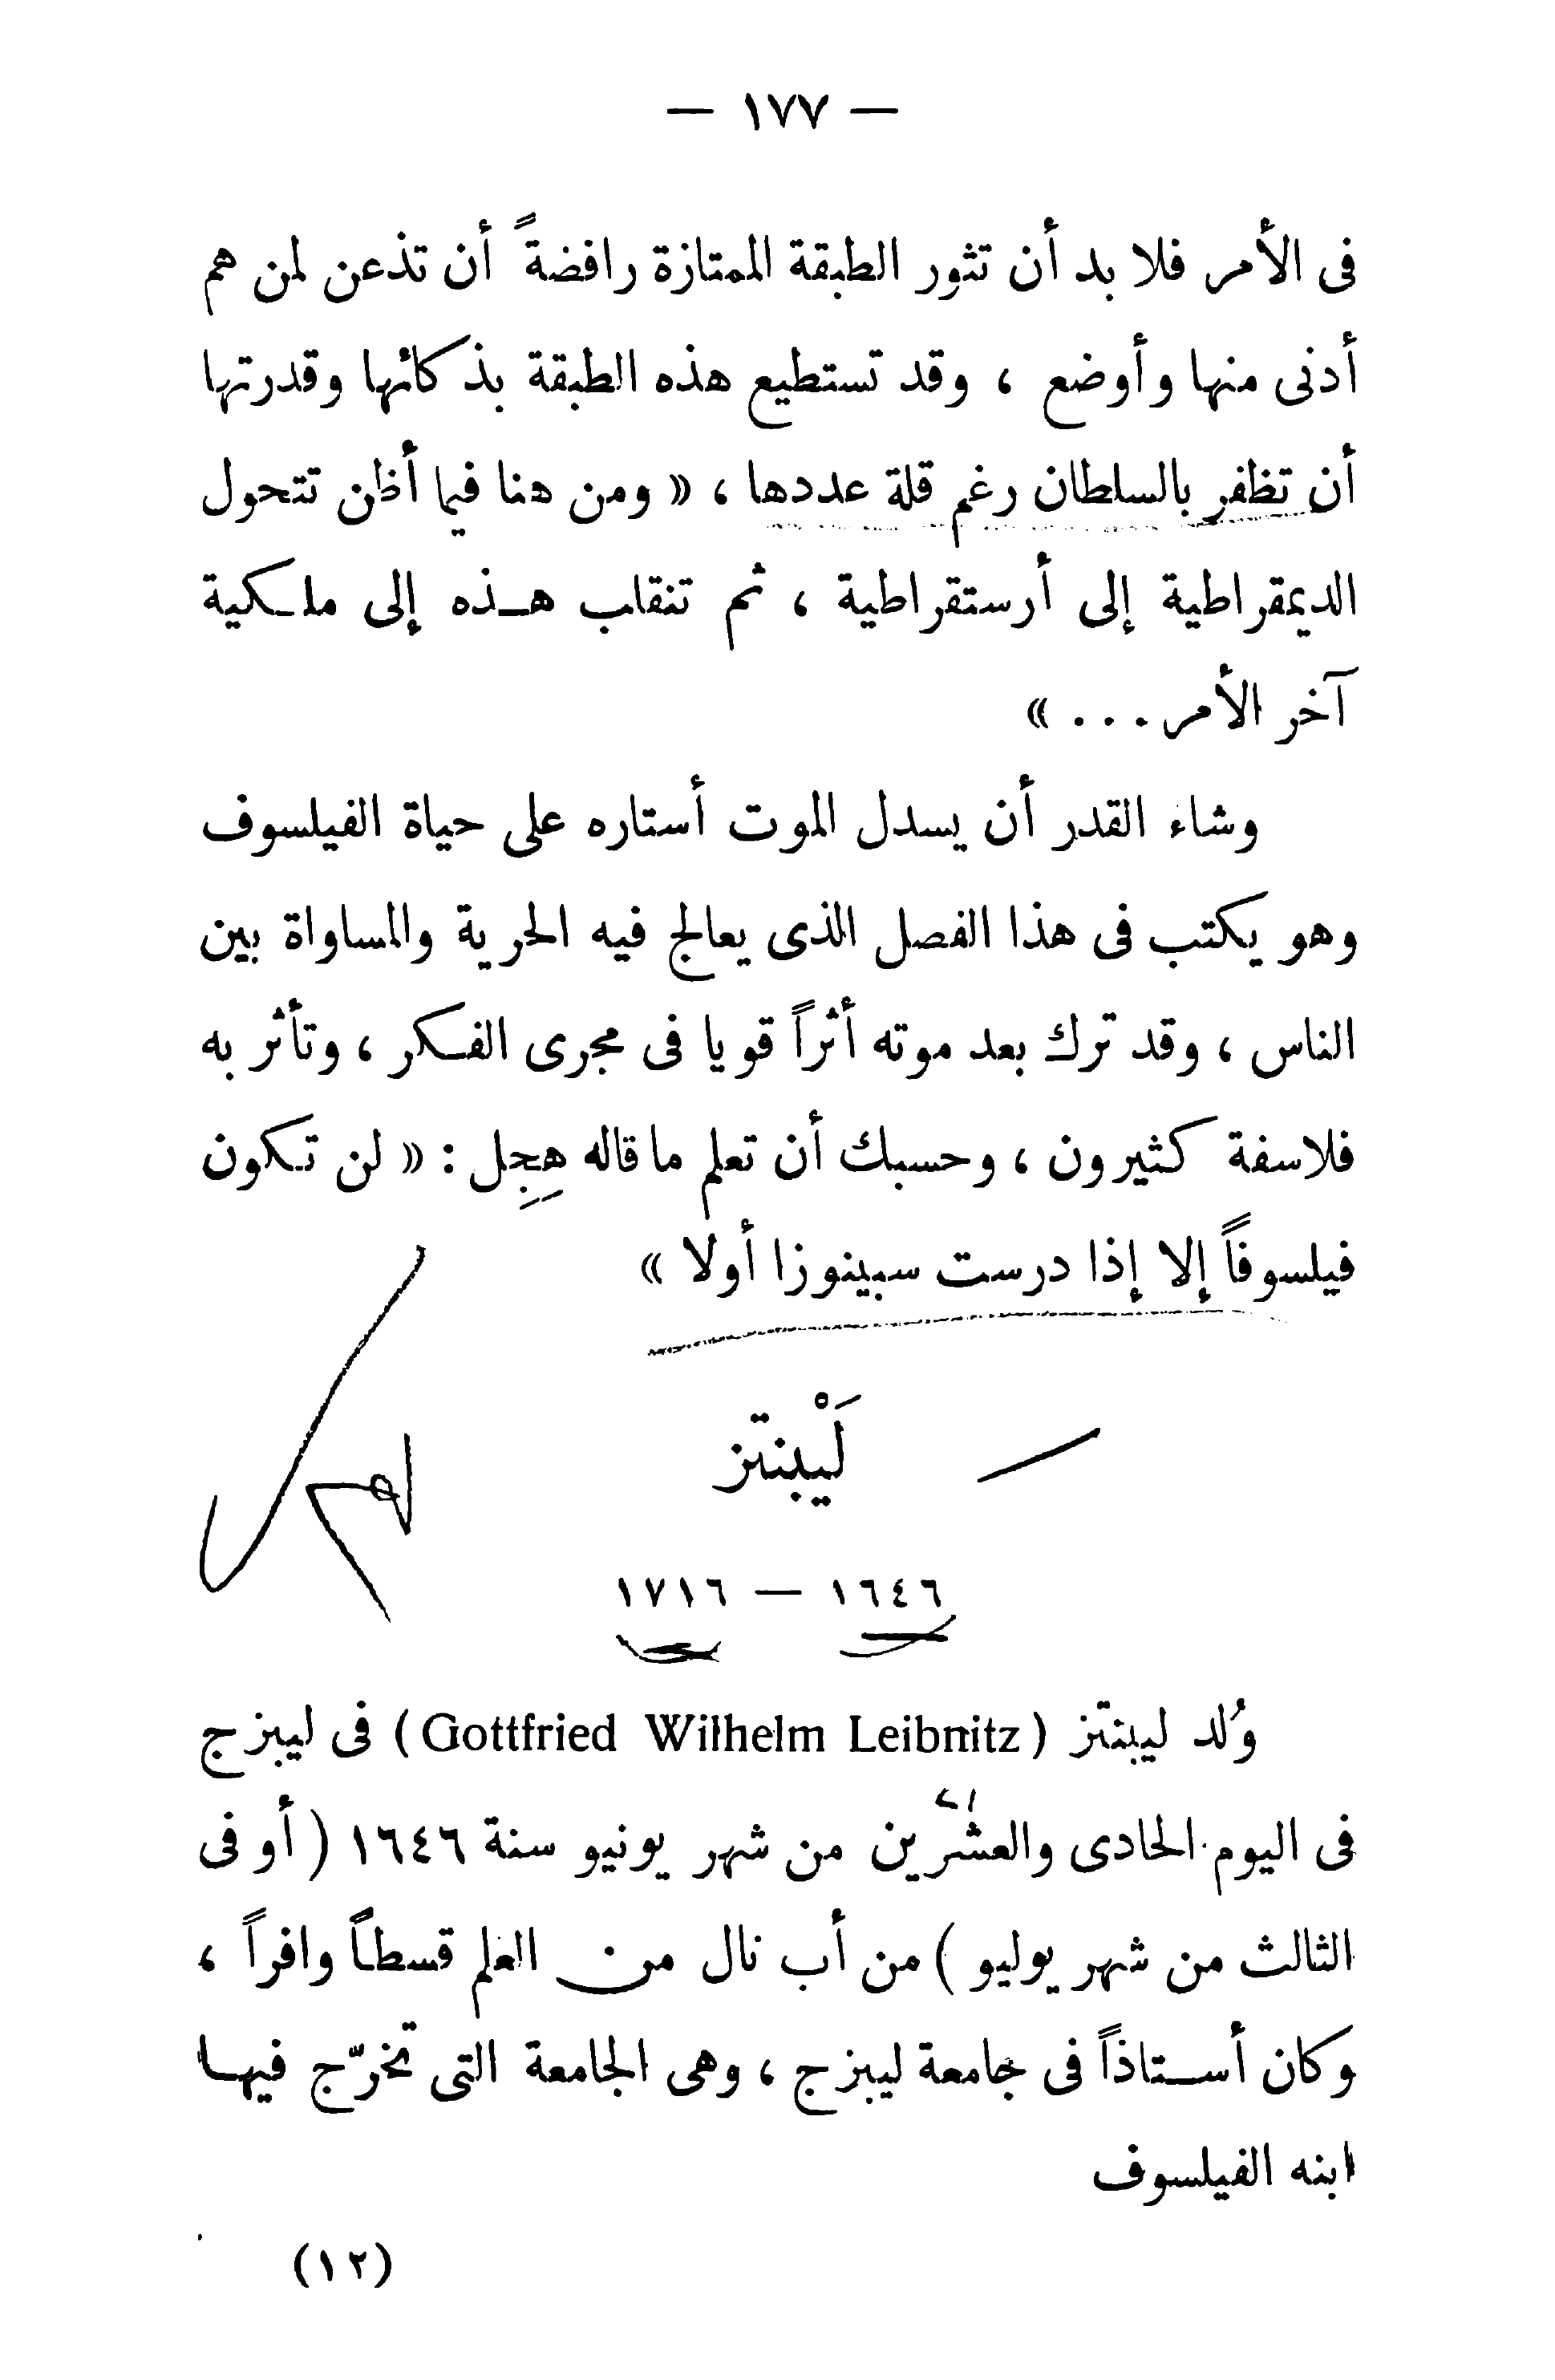 — ١٧٧ —
فى الأمر فلا بد أن تثور الطبقة الممتازة رافضةً أن تذعن لمن هم
أدنى منها وأوضع ، وقد تستطيع هذه الطبقة بذكائها وقدرتها
أن تظفر بالسلطان رغم قلة عددها ، « ومن هنا فيما أظن تتحول
الديمقراطية إلى أرستقراطية ، ثم تنقلب هـذه إلى ملـكية
آخر الأمر . . . »
وشاء القدر أن يسدل الموت أستاره على حياة الفيلسوف
وهو يكتب فى هذا الفصل الذى يعالج فيه الحرية والمساواة بين
الناس ، وقد ترك بعد موته أثراً قويا فى مجرى الفـكر ، وتأثر به
فلاسفة كثيرون ، وحسبك أن تعلم ما قاله هِجِل : « لن تـكون
فيلسوفاً إلا إذا درست سبينوزا أولا »
لَيْبنتز
١٦٤٦ — ١٧١٦
وُلد ليبنتز ( Gottfried Wilhelm Leibnitz ) فى ليبزج
فى اليوم الحادى والعشرين من شهر يونيو سنة ١٦٤٦ ( أو فى
الثالث من شهر يوليو ) من أب نال من العلم قسطاً وافراً ،
وكان أسـتاذاً فى جامعة ليبزج ، وهى الجامعة التى تخرّج فيهـا
ابنه الفيلسوف
(١٢)